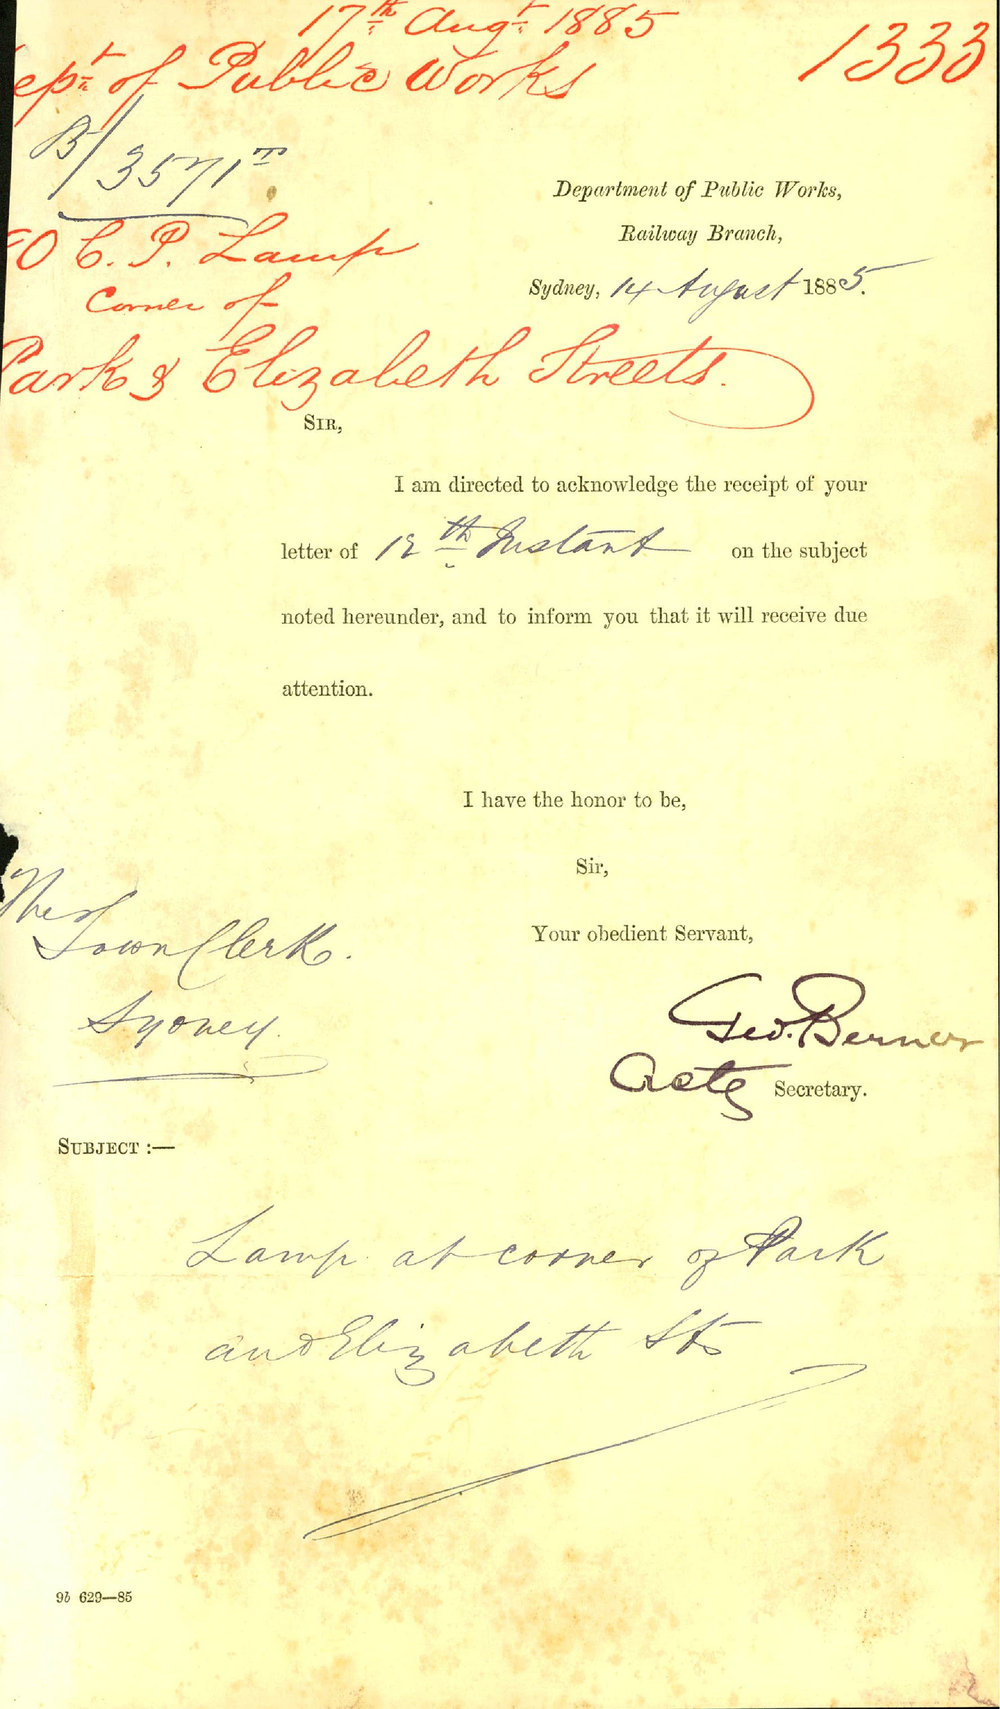 17th Augt 1885
ept of Public Works
1333
B/3571
C. P. Lamp
Corner of
Park & Elizabeth Streets.
Department of Public Works,
Railway Branch,
Sydney, 14 August 1885.
SIR,
I am directed to acknowledge the receipt of your
letter of 12th Instant on the subject
noted hereunder, and to inform you that it will receive due
attention.
I have the honor to be,
Sir,
Your obedient Servant,
The
Town Clerk.
Sydney.
Geo. Berner
Actg Secretary.
SUBJECT :—
Lamp at corner of Park
and Elizabeth Sts
9b 629—85